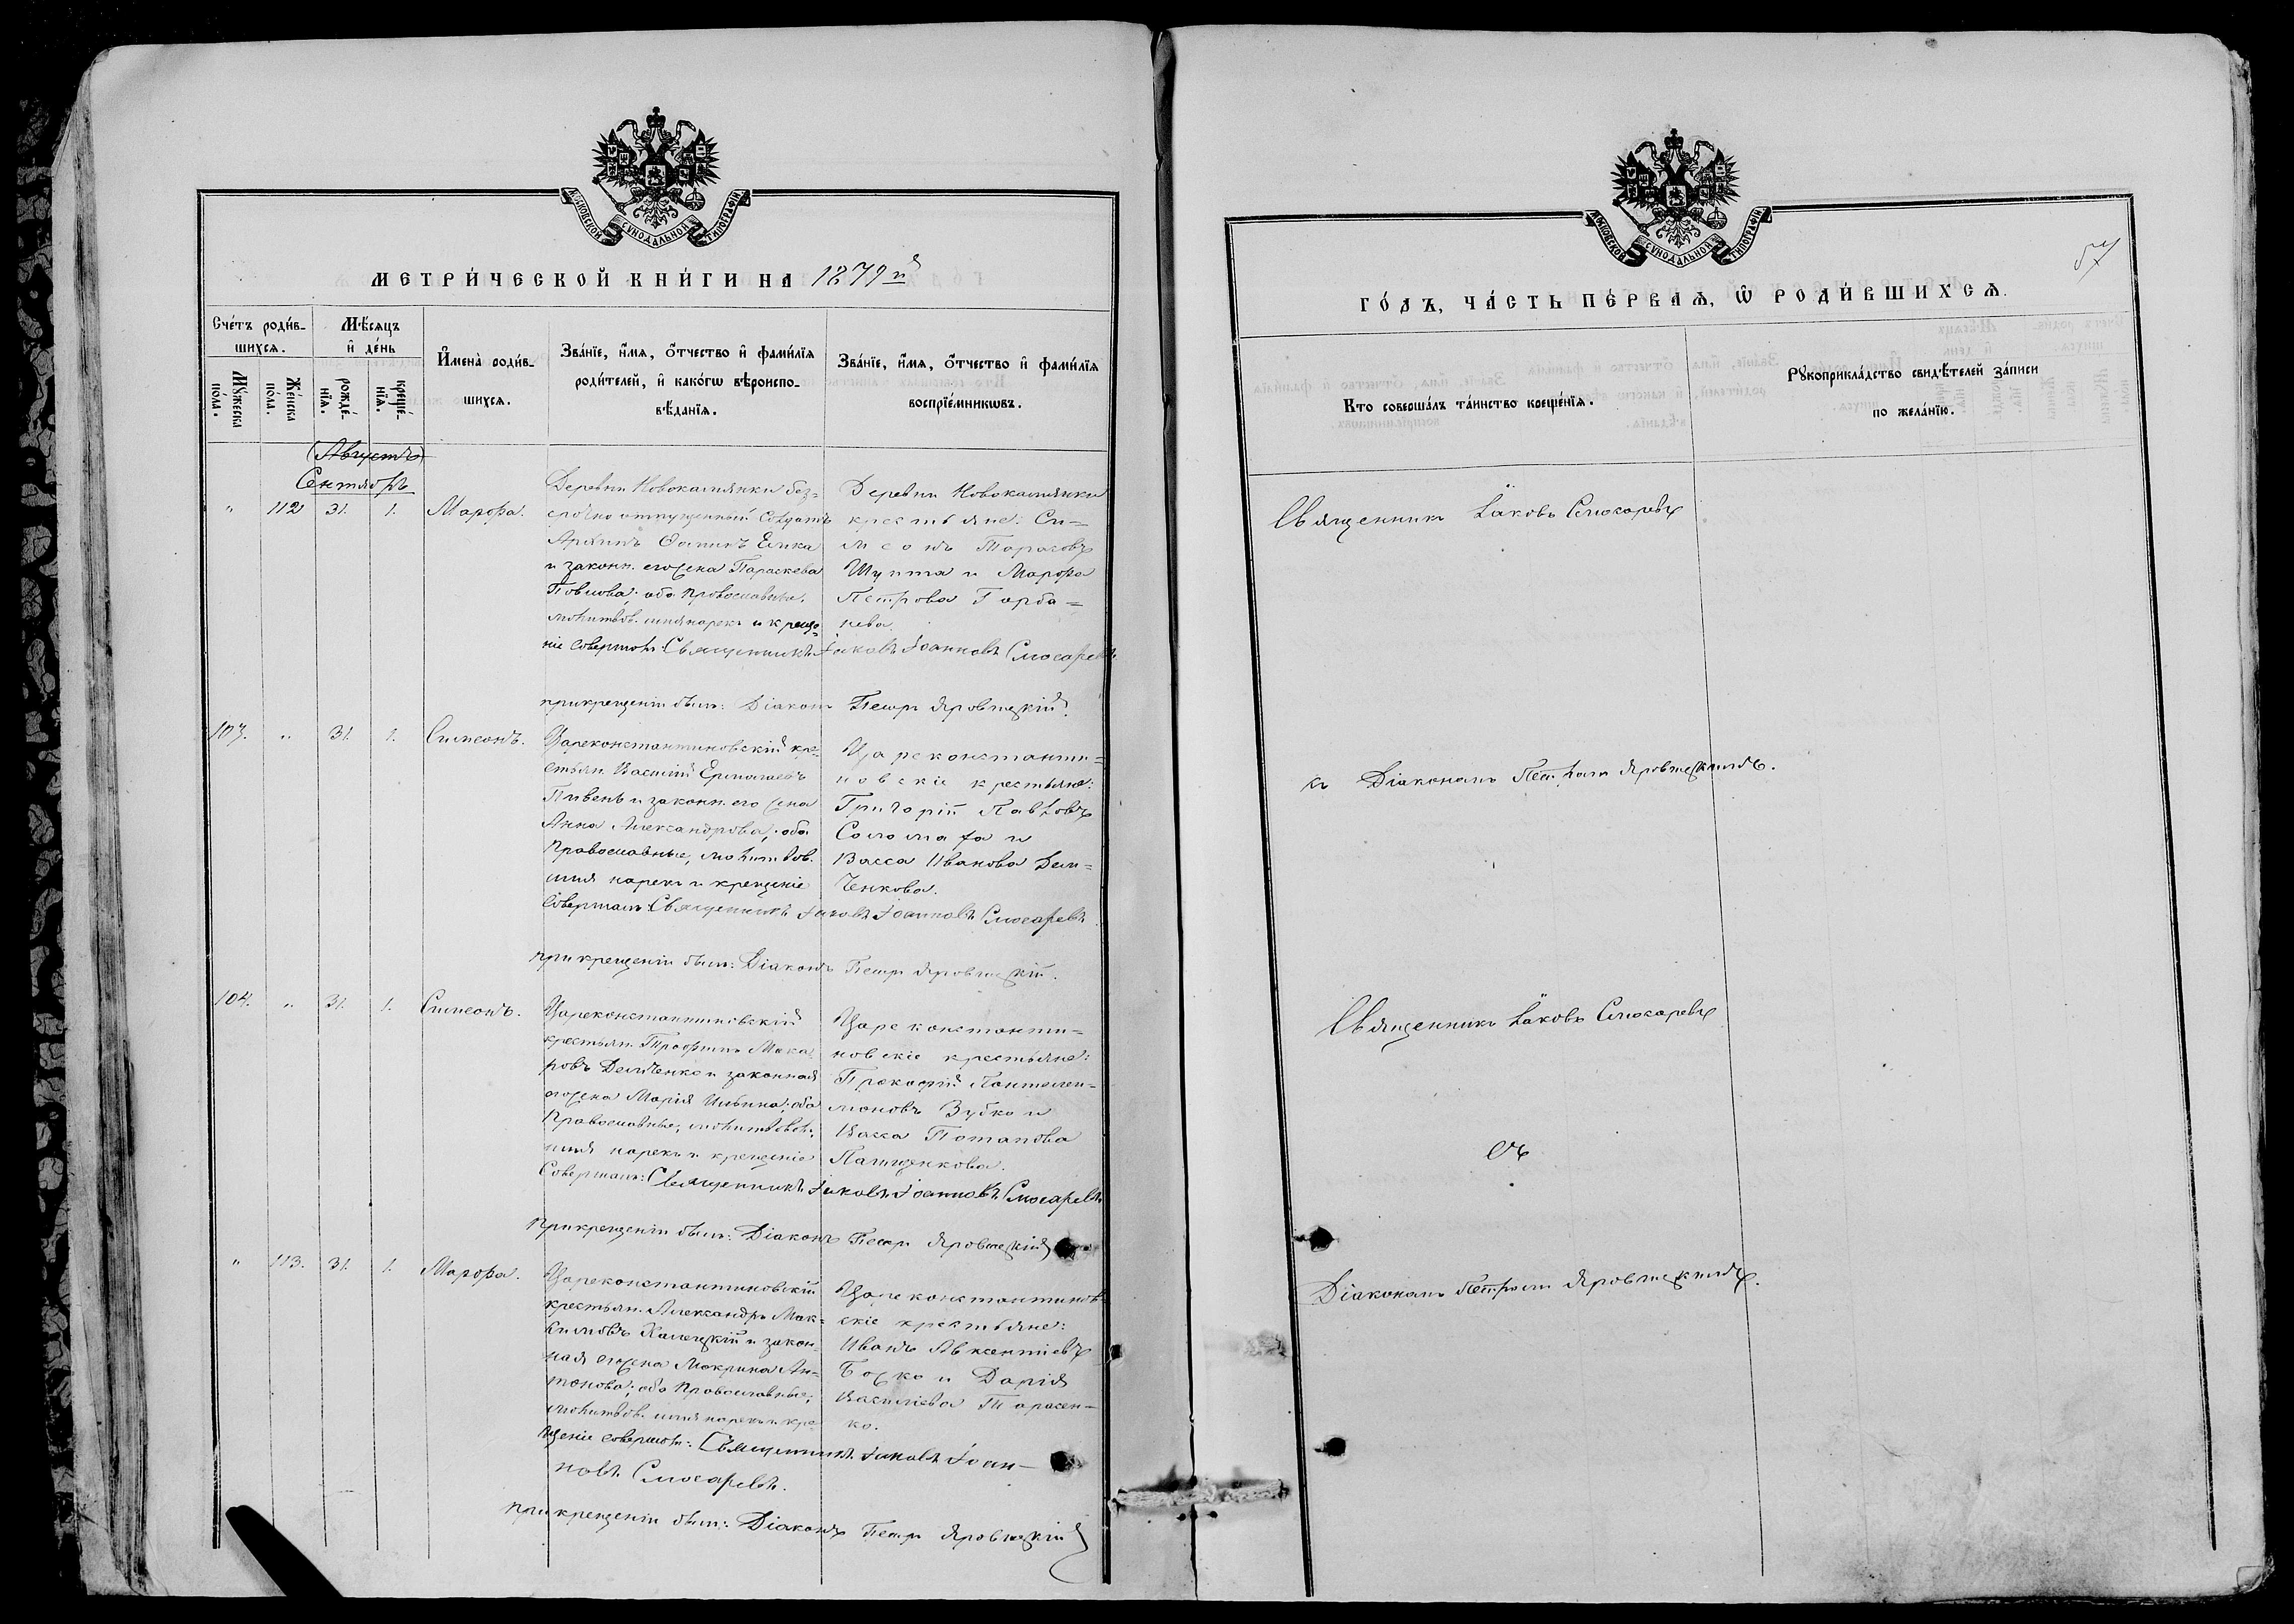 МОСКОВСКОЙ СѴНОДАЛЬНОЙ ТИПОГРАФІИ
МЕТРИ́ЧЕСКОЙ КНИ́ГИ НА 1879й
Сче́тъ роди́в-
шихсѧ.
Мꙋ́жеска
по́ла.
Же́нска
по́ла.
Мѣ́сѧцъ
и҆ де́нь
рожде́-
нїѧ.
креще́-
нїѧ.
И҆мена̀ роди́в-
шихсѧ.
Зва́нїе, и҆́мѧ, ѻ҆́тчество и҆ фами́лїѧ
роди́телей, и҆ како́гѡ вѣроиспо-
вѣ́данїѧ.
Зва́нїе, и҆́мѧ, ѻ҆́тчество и҆ фами́лїѧ
воспрїе́мникѡвъ.
(Августъ)
Сентябрь
" 112 31. 1. Марфа.
Деревни Новокамянки без=
срочно отпущенный Солдатъ
Архипъ Ѳоминъ
и законн. его жена Параскева
Павлова; оба православн.
молитвов. имя нарек. и креще=
ніе совершалъ: Священникъ Іаковъ Іоанновъ Слюсаревъ
Деревни Новокамянки
крестьяне: Си=
меонъ Тарасовъ
Шупта и Марфа
Петрова Горба=
нева.
при крещеніи былъ: Діаконъ Петръ Яровицкій.
103. " 31. 1. Симеонъ.
Цареконстантиновскій кре=
стьян. Василій Ермолаевъ
Пивень и законн. его жена
Анна Александрова; оба
православные, молитвов.
имя нарекъ и крещеніе
совершалъ: Священникъ Іаковъ Іоанновъ Слюсаревъ
Цареконстанти=
новскіе крестьяне:
Григорій Павловъ
Соломаха и
Васса Иванова Дем=
ченкова.
при крещеніи былъ: Діаконъ Петръ Яровицкій.
104. " 31. 1. Симеонъ.
Цареконстантиновскій
крестьян. Трофимъ Мака
ровъ Демченко и законная
его жена Марія Ильина; оба
Православные, молитвовов.
имя нарекъ и крещеніе
Совершалъ: Священникъ Іаковъ Іоанновъ Слюсаревъ
Цареконстанти=
новскіе крестьяне:
Прокофій Пантелеи=
моновъ Зубко и
Васса Потапова
Пащенкова.
при крещеніи былъ: Діаконъ Петръ Яровицкій
" 113. 31. 1. Марфа.
Цареконстантиновскій
крестьян. Александръ Мак=
симовъ и закон=
ная его жена Макрина Ан=
тонова; оба Православные;
молитвов. имя нарекъ и кре=
щеніе совершалъ: Священникъ Іаковъ Іоан=
новъ Слюсаревъ.
Цареконстантинов=
скіе крестьяне:
Иванъ Авксентіевъ
Божко и Дарія
Василіева Тарасен=
ко.
при крещеніи былъ: Діаконъ Петръ Яровицкій
МОСКОВСКОЙ СѴНОДАЛЬНОЙ ТИПОГРАФІИ
57
ГО́ДЪ, ЧА́СТЬ ПЕ́РВАѦ, Ѡ҆ РОДИ́ВШИХСѦ.
Кто соверша́лъ та́инство креще́нїѧ.
Рꙋкоприкла́дство свидѣ́телей за́писи
по жела́нїю.
Священникъ Іаковъ Слюсаревъ
съ Діакономъ Петромъ Яровицкимъ.
Священникъ Іаковъ Слюсаревъ
съ
Діакономъ Петромъ Яровицкимъ.